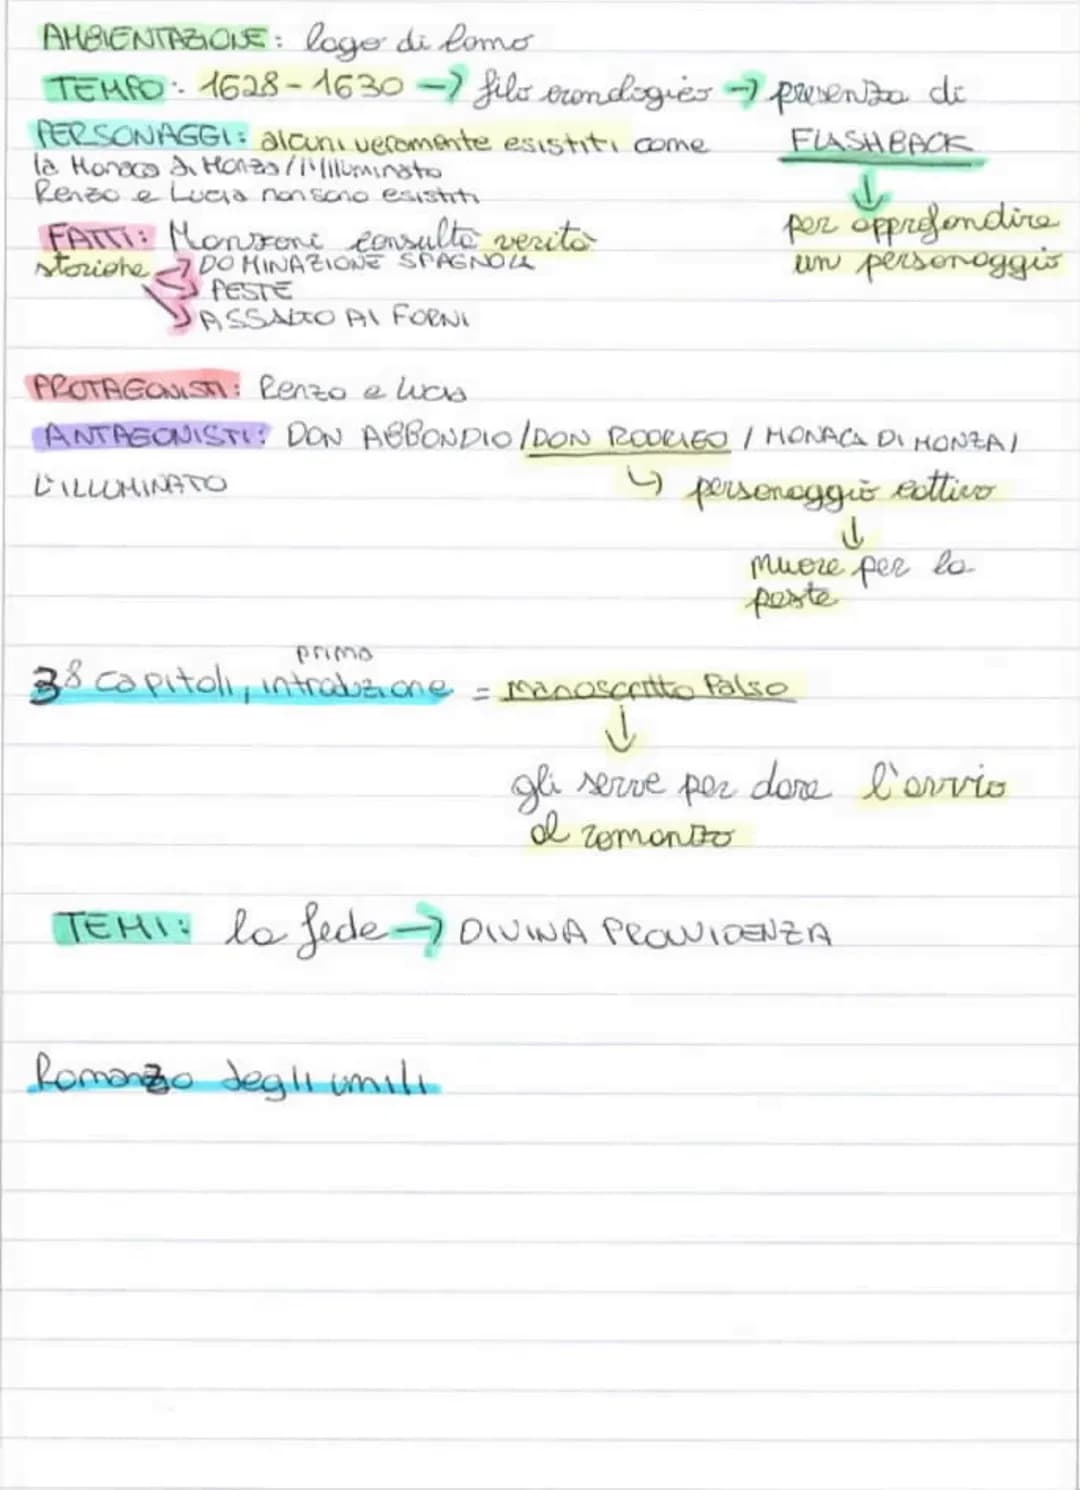 AMBIENTAZIONE: lago di Como
TEMPO: 1628-1630 → filo cronologico → presenza di
FLASHBACK
↓
per approfondire
un personaggio
PERSONAGGI: alcuni veramente esistiti come
la Monaca di Monza/l'illuminato
Renzo e Lucia non sono esistiti
FATTI: Manzoni consulta verità
storiche → DOMINAZIONE SPAGNOLA
→ PESTE
→ ASSALTO AI FORNI
PROTAGONISTI: Renzo e Lucia
ANTAGONISTI: DON ABBONDIO/DON RODRIGO / MONACA DI MONZA/
L'ILLUMINATO
↳ personaggio cattivo
↓
muore per la
peste
primo
38 capitoli, introduzione = manoscritto falso
↓
gli serve per dare l'avvio
al romanzo
TEMI: la fede → DIVINA PROVVIDENZA
Romanzo degli umili